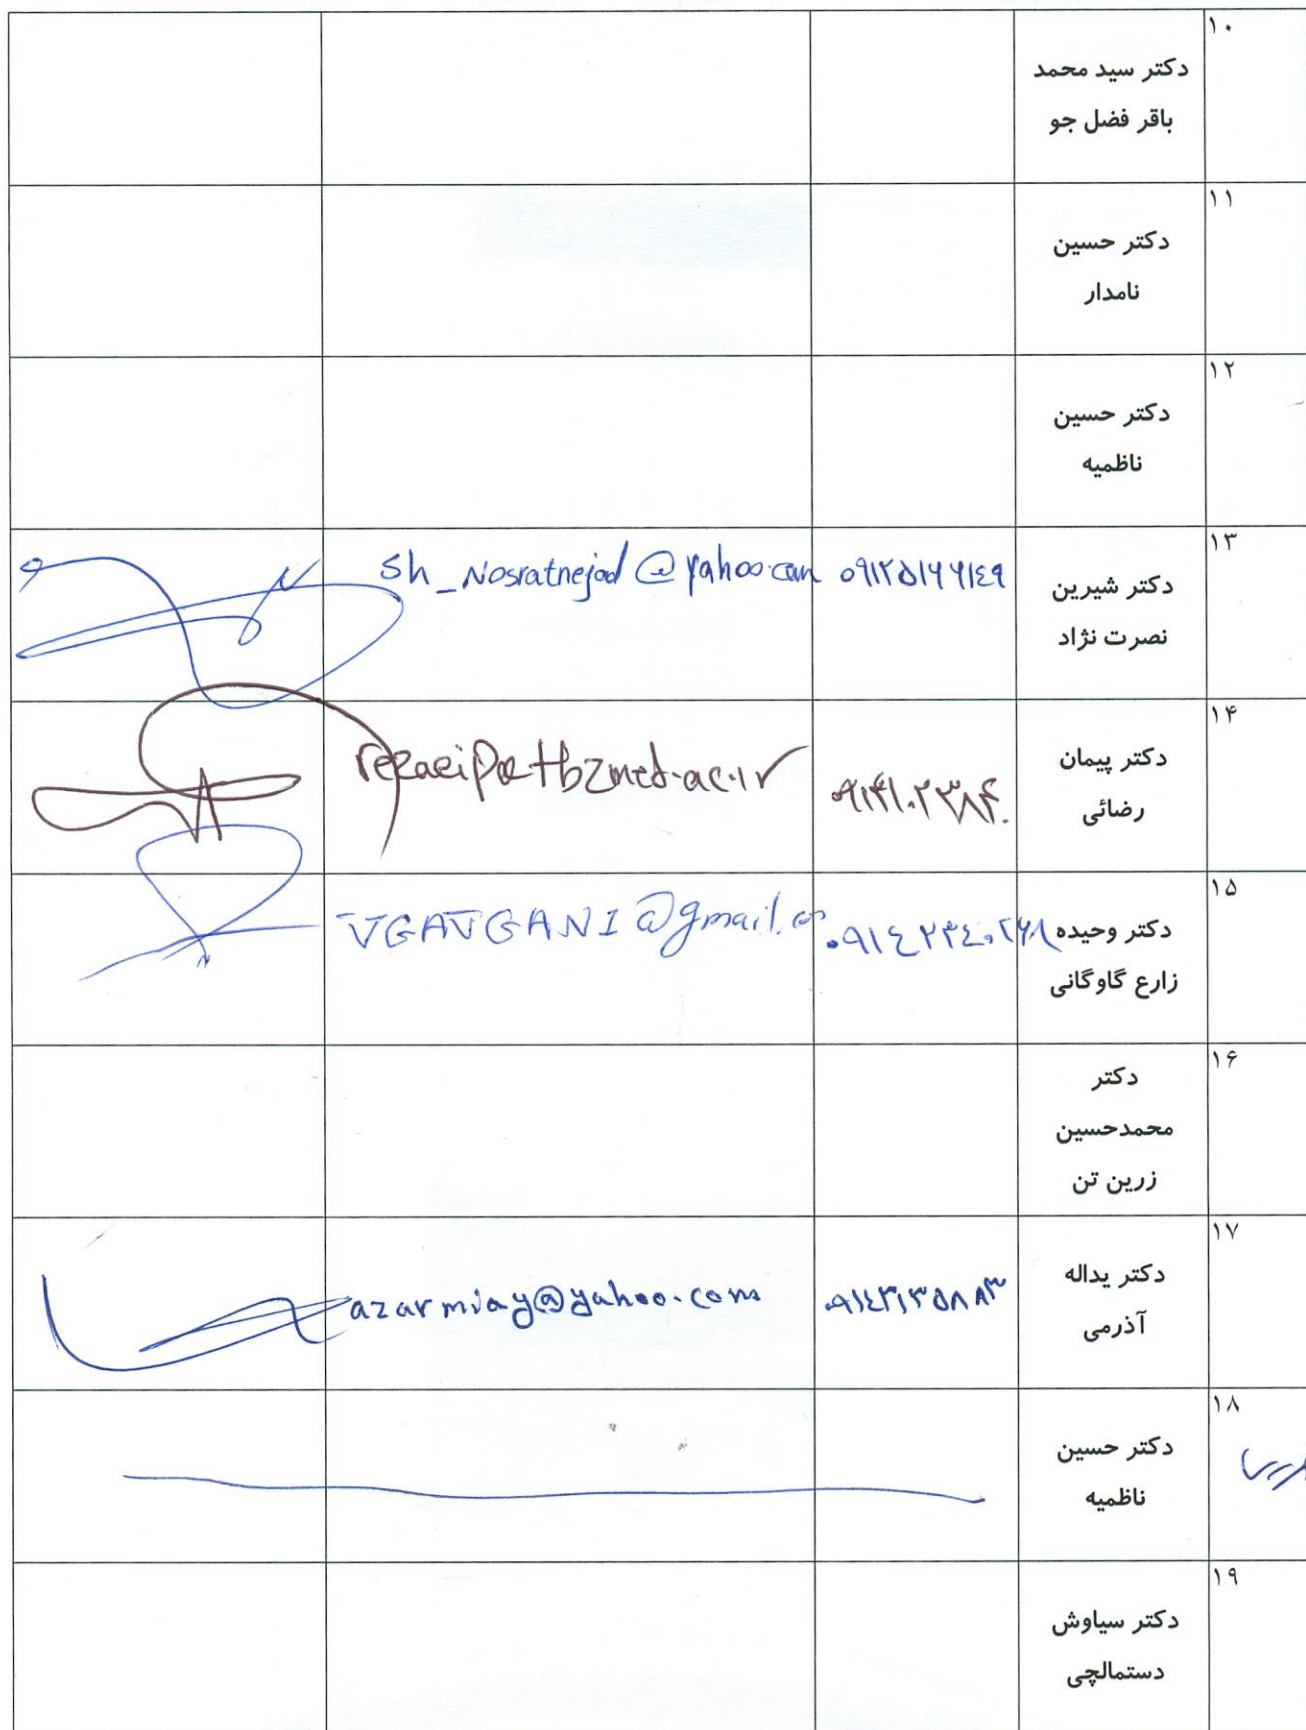 ۱۰
دکتر سید محمد
باقر فضل جو
۱۱
دکتر حسین
نامدار
۱۲
دکتر حسین
ناظمیه
۱۳
دکتر شیرین
نصرت نژاد
۰۹۱۲۵۱۶۶۱۴۹
sh_Nosratnejad@yahoo.com
۱۴
دکتر پیمان
رضائی
rezaeip@tbzmed.ac.ir
۱۵
دکتر وحیده
زارع گاوگانی
VGAVGANI@gmail.co
۱۶
دکتر
محمدحسین
زرین تن
۱۷
دکتر یداله
آذرمی
۰۹۱۴۳۱۳۵۸۸۳
azarmiay@yahoo.com
۱۸
دکتر حسین
ناظمیه
۱۹
دکتر سیاوش
دستمالچی